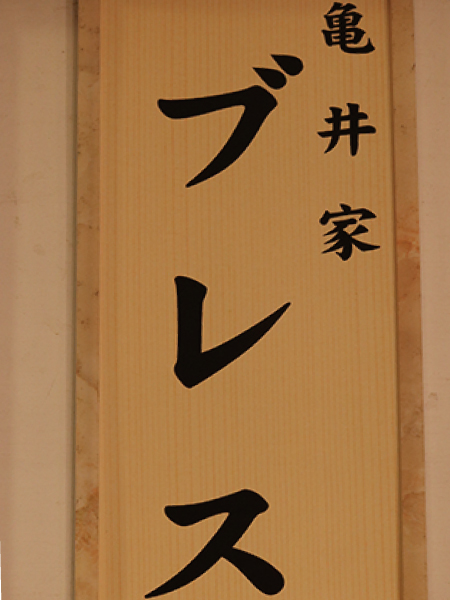 亀井家
ブレス